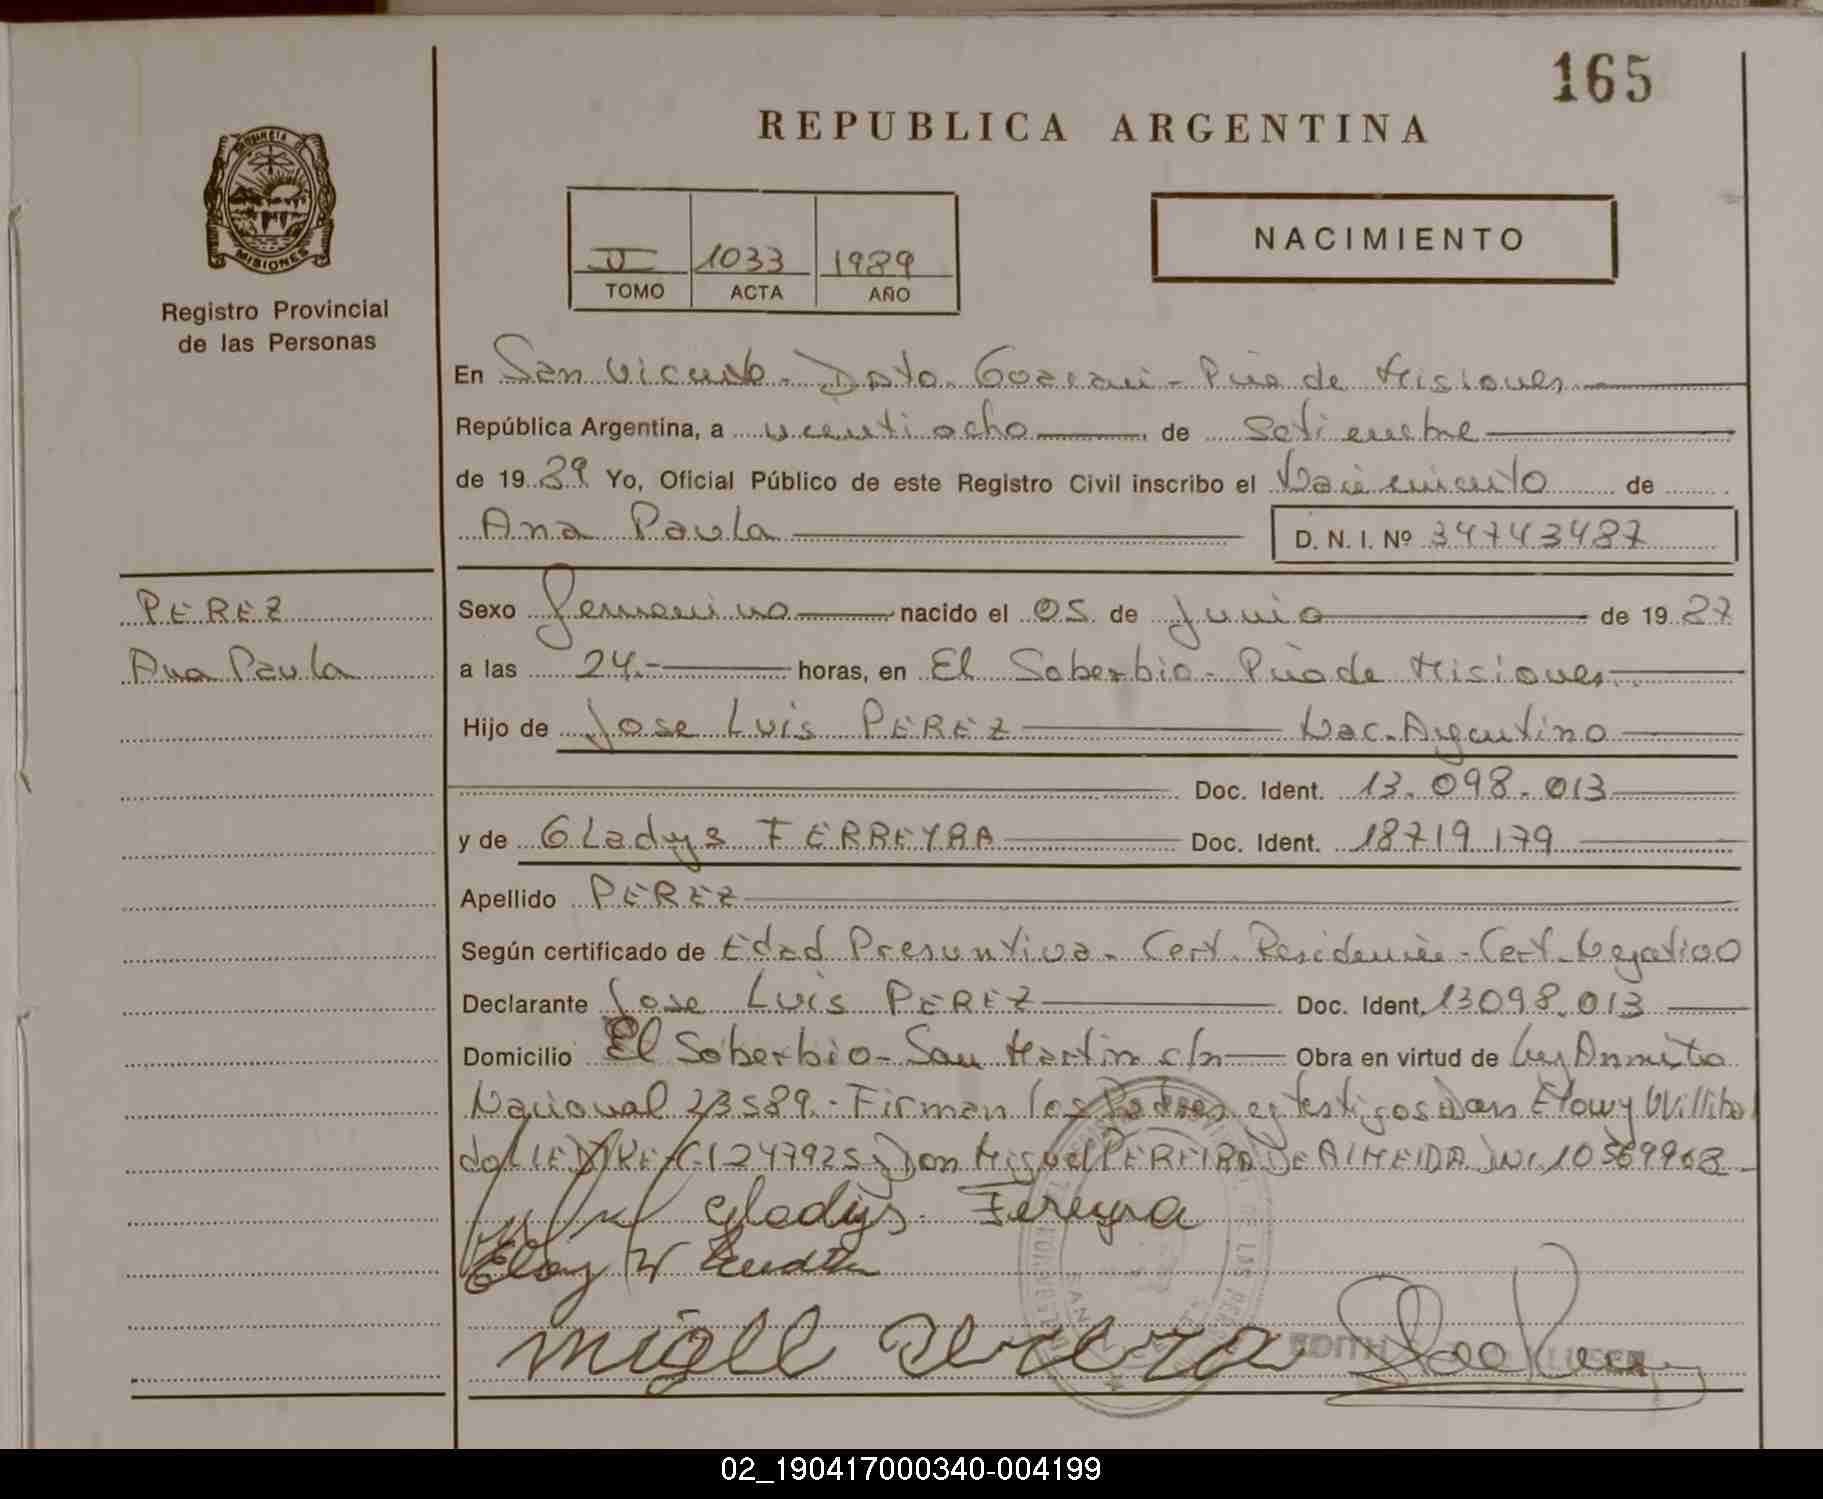 165
REPUBLICA ARGENTINA
MISIONES
Registro Provincial
de las Personas
II 1033 1989
TOMO ACTA AÑO
NACIMIENTO
En San Vicente - Dpto. Guarani - Pcia de Misiones
República Argentina, a veintiocho de Setiembre
de 1989 Yo, Oficial Público de este Registro Civil inscribo el Nacimiento de
Ana Paula D. N. I. Nº 34743487
PEREZ
Ana Paula
Sexo femenino nacido el 05 de Junio de 1987
a las 24.- horas, en El Soberbio - Pcia de Misiones
Hijo de Jose Luis PEREZ Nac. Argentino
Doc. Ident. 13.098.013
y de Gladys FERREYRA Doc. Ident. 18719.179
Apellido PEREZ
Según certificado de Edad Presuntiva - Cert. Residencia - Cert. Negativo
Declarante Jose Luis PEREZ Doc. Ident. 13098.013
Domicilio El Soberbio - San Martin s/n Obra en virtud de Ley Amnistia
Nacional 23589.- Firman los Padres y testigos Don
Don Miguel PEREIRA DE ALMEIDA
Gladys Fereyra
Eloy W
Migell Pereira
EDITH
02_190417000340-004199